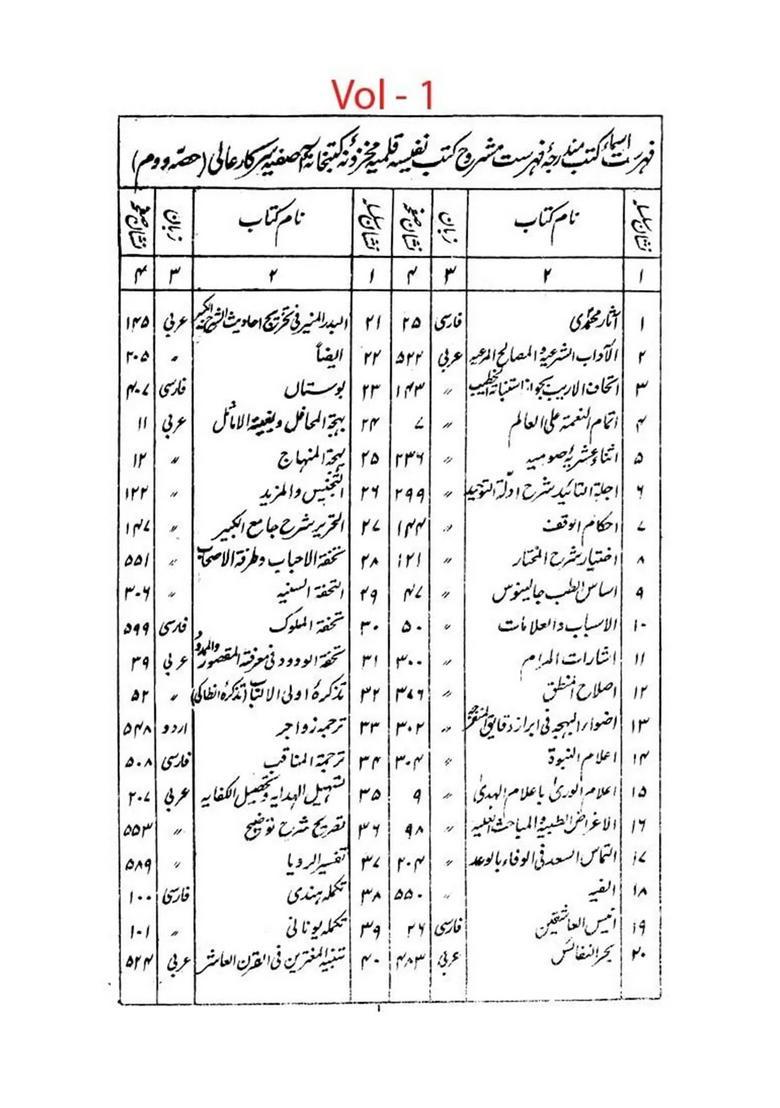 Vol - 1
فہرست اسماء کتب مندرجۂ فہرست مشروح کتب نفیسہ قلمیہ مخزونۂ کتبخانۂ آصفیہ سرکار عالی (حصّہ دوم)
نشان سلسلہ نام کتاب زبان نشان صفحہ نشان سلسلہ نام کتاب زبان نشان صفحہ
۱ ۲ ۳ ۴ ۱ ۲ ۳ ۴
۱ آثار محمدی فارسی ۲۵ ۲۱ البدر المنیر فی تخریج احادیث الشرح الکبیر عربی ۱۴۵
۲ الآداب الشرعیۃ و المصالح المرعیہ عربی ۵۲۲ ۲۲ ایضاً " ۲۰۵
۳ اتحاف الاریب بجواز استنابۃ الخطیب " ۱۴۳ ۲۳ بوستاں فارسی ۴۰۷
۴ اتمام النعمۃ علی العالم " ۷ ۲۴ بہجۃ المحافل وبغیۃ الاماثل عربی ۱۱
۵ اثنا عشریہ صومیہ " ۲۳۶ ۲۵ بہجۃ المنہاج " ۱۲
۶ اجلۃ التائید شرح ادلّۃ التوحید " ۲۹۹ ۲۶ التجنیس والمزید " ۱۲۲
۷ احکام الوقف " ۱۴۴ ۲۷ التحریر شرح جامع الکبیر " ۱۴۷
۸ اختیار شرح المختار " ۱۲۱ ۲۸ تحفۃ الاحباب وطرفۃ الاصحاب " ۵۵۱
۹ اساس الطب جالینوس " ۴۷ ۲۹ التحفۃ السنیہ " ۳۰۶
۱۰ الاسباب والعلامات " ۵۰ ۳۰ تحفۃ الملوک فارسی ۵۹۹
۱۱ اشارات المرام " ۳۰۰ ۳۱ تحفۃ الودود فی معرفۃ المقصور والممدود عربی ۳۹
۱۲ اصلاح المنطق " ۳۷۶ ۳۲ تذکرۂ اولی الالباب (تذکرۂ انطاکی) " ۵۲
۱۳ اضواء البہجہ فی ابراز دقایق المنفرجہ " ۳۰۲ ۳۳ ترجمہ زواجر اردو ۵۴۸
۱۴ اعلام النبوۃ " ۳۰۴ ۳۴ ترجمۃ المناقب فارسی ۵۰۸
۱۵ اعلام الوریٰ باعلام الہدیٰ " ۹ ۳۵ تسہیل الہدایہ وتحصیل الکفایہ عربی ۲۰۷
۱۶ الاغراض الطبیۃ والمباحث العلیہ " ۹۸ ۳۶ تصریح شرح توضیح " ۵۵۳
۱۷ التماس السعد فی الوفاء بالوعد " ۲۰۴ ۳۷ تفسیر الرویا " ۵۸۹
۱۸ الفیہ " ۵۵۰ ۳۸ تکملہ ہندی فارسی ۱۰۰
۱۹ انیس العاشقین فارسی ۲۶ ۳۹ تکملہ یونانی " ۱۰۱
۲۰ بحر النفائس عربی ۴۸۳ ۴۰ تنبیہ المغترین فی القرن العاشر عربی ۵۲۴